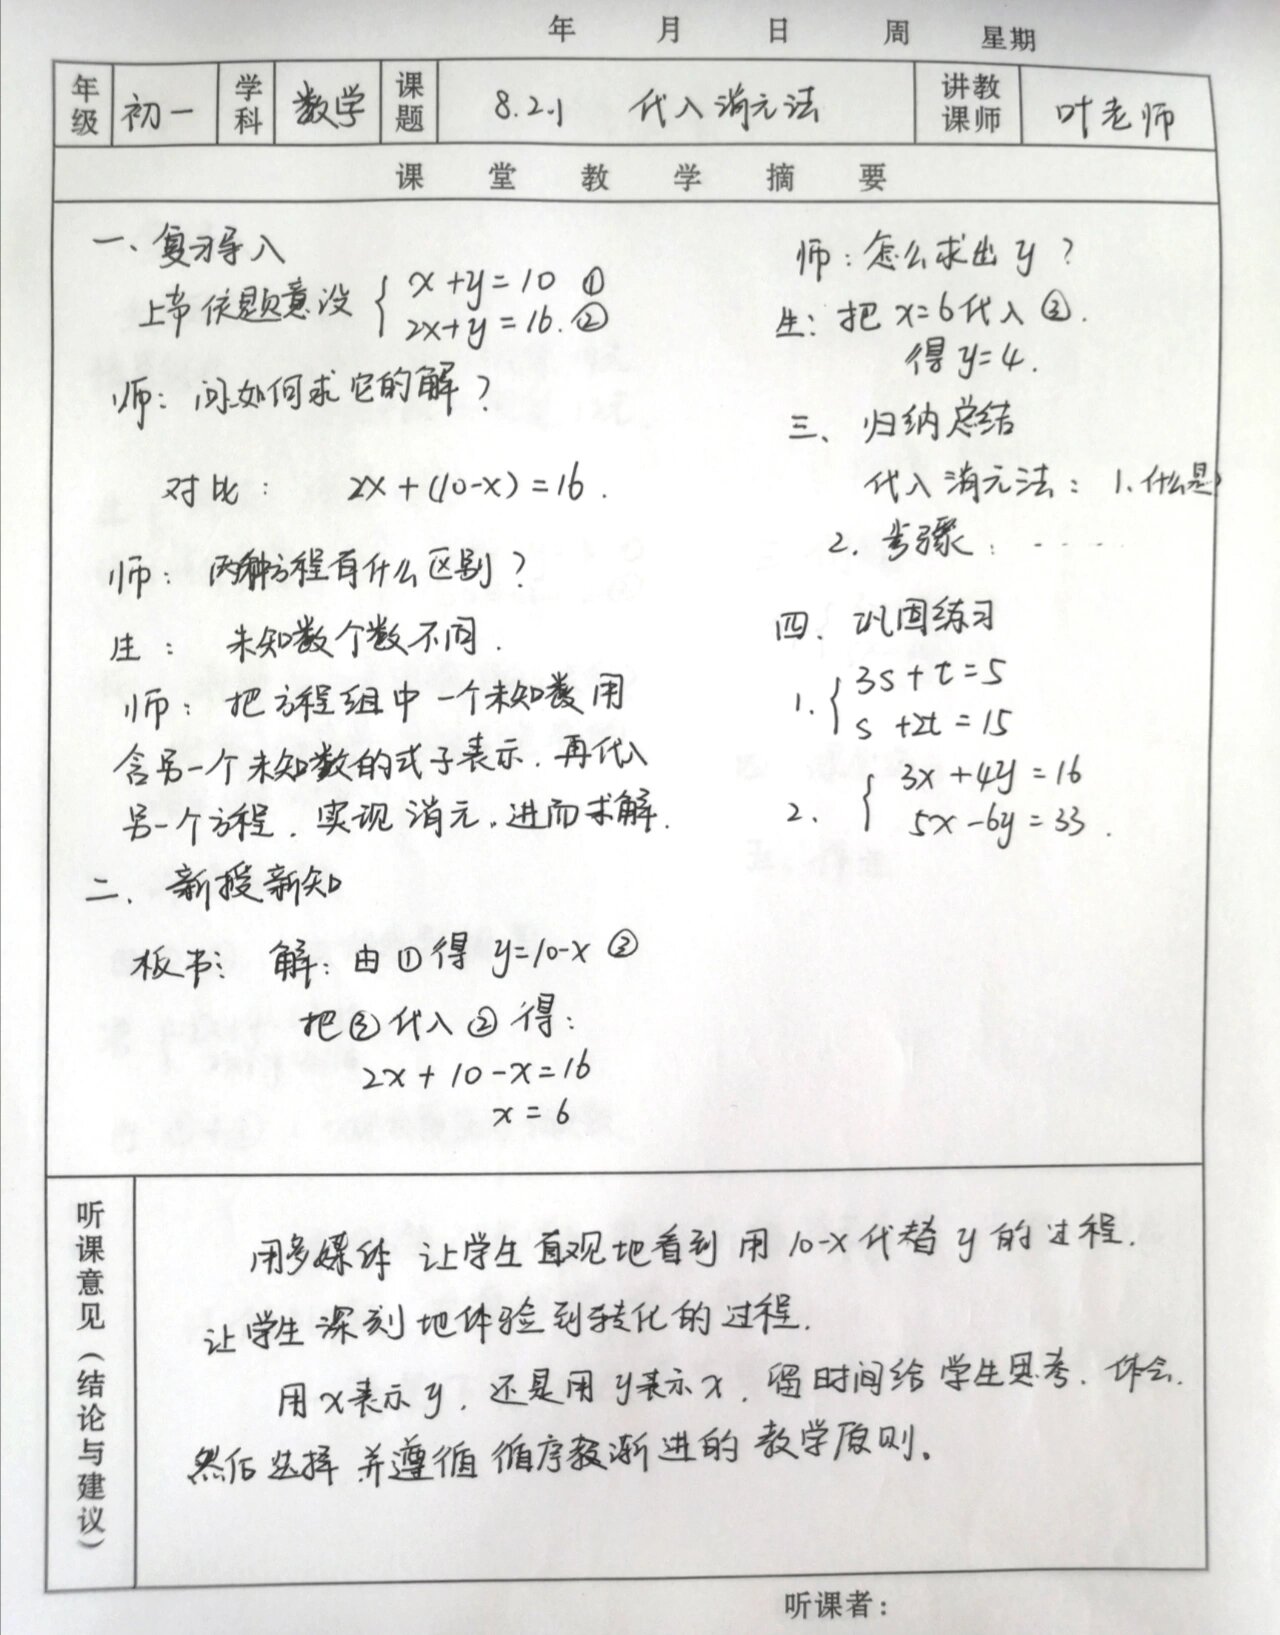 年 月 日 周 星期
年级 初一 学科 数学 课题 8.2.1 代入消元法 讲课教师 叶老师
课堂教学摘要
一、复习导入
上节依题意设 { x+y=10 ①
2x+y=16. ②
师：问如何求它的解？
对比： 2x+(10-x)=16.
师：两种方程有什么区别？
生：未知数个数不同.
师：把方程组中一个未知数用
含另一个未知数的式子表示.再代入
另一个方程.实现消元.进而求解.
二、新授新知
板书：解：由①得 y=10-x ③
把③代入②得：
2x+10-x=16
x=6
师：怎么求出y？
生：把x=6代入③.
得y=4.
三、归纳总结
代入消元法：1、什么是
2.步骤：……
四、巩固练习
1. { 3s+t=5
s+2t=15
2. { 3x+4y=16
5x-6y=33.
听课意见（结论与建议）
用多媒体 让学生直观地看到用10-x代替y的过程.
让学生深刻地体验到转化的过程.
用x表示y.还是用y表示x.留时间给学生思考.体会.
然后选择并遵循循序渐进的教学原则。
听课者：